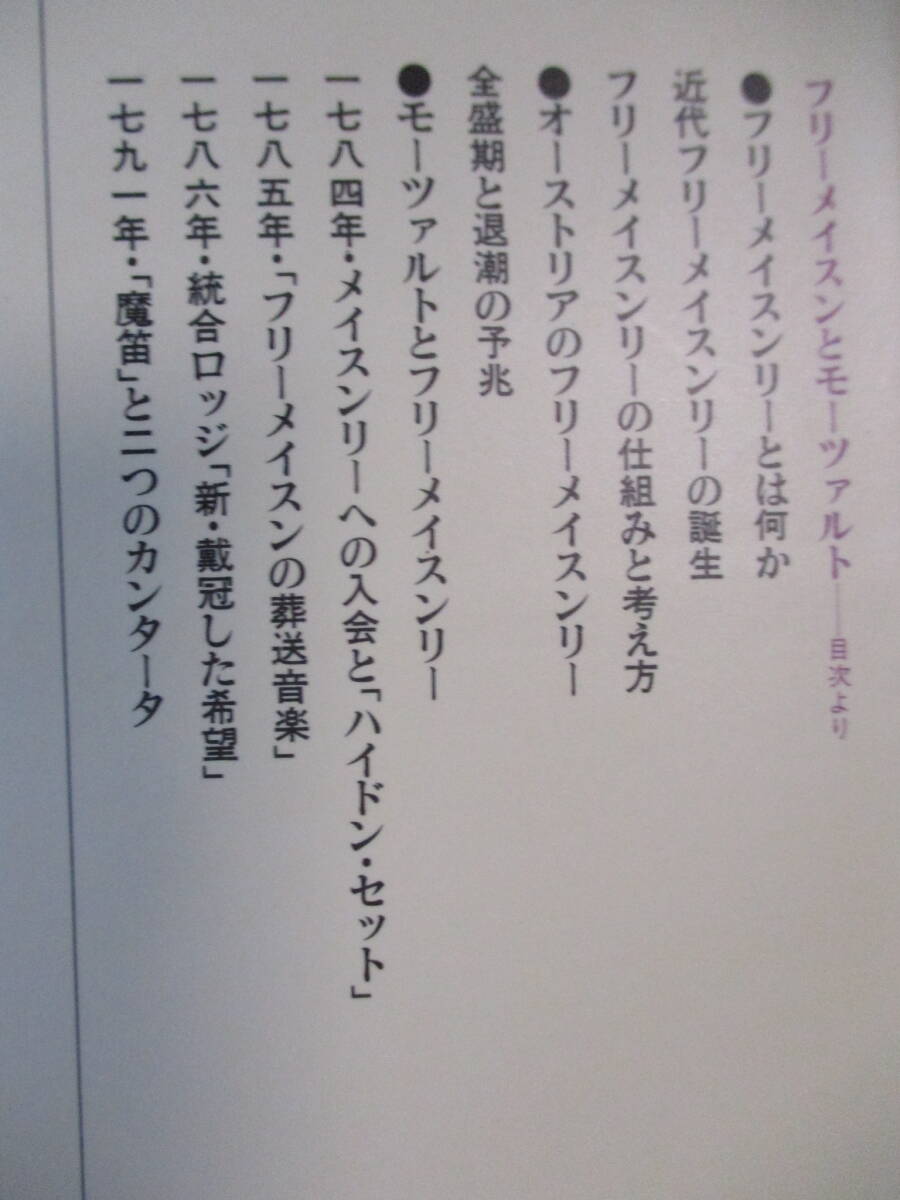 フリーメイスンとモーツァルト──目次より
●フリーメイスンリーとは何か
近代フリーメイスンリーの誕生
フリーメイスンリーの仕組みと考え方
●オーストリアのフリーメイスンリー
全盛期と退潮の予兆
●モーツァルトとフリーメイスンリー
一七八四年・メイスンリーへの入会と「ハイドン・セット」
一七八五年・「フリーメイスンの葬送音楽」
一七八六年・統合ロッジ「新・戴冠した希望」
一七九一年・「魔笛」と二つのカンタータ